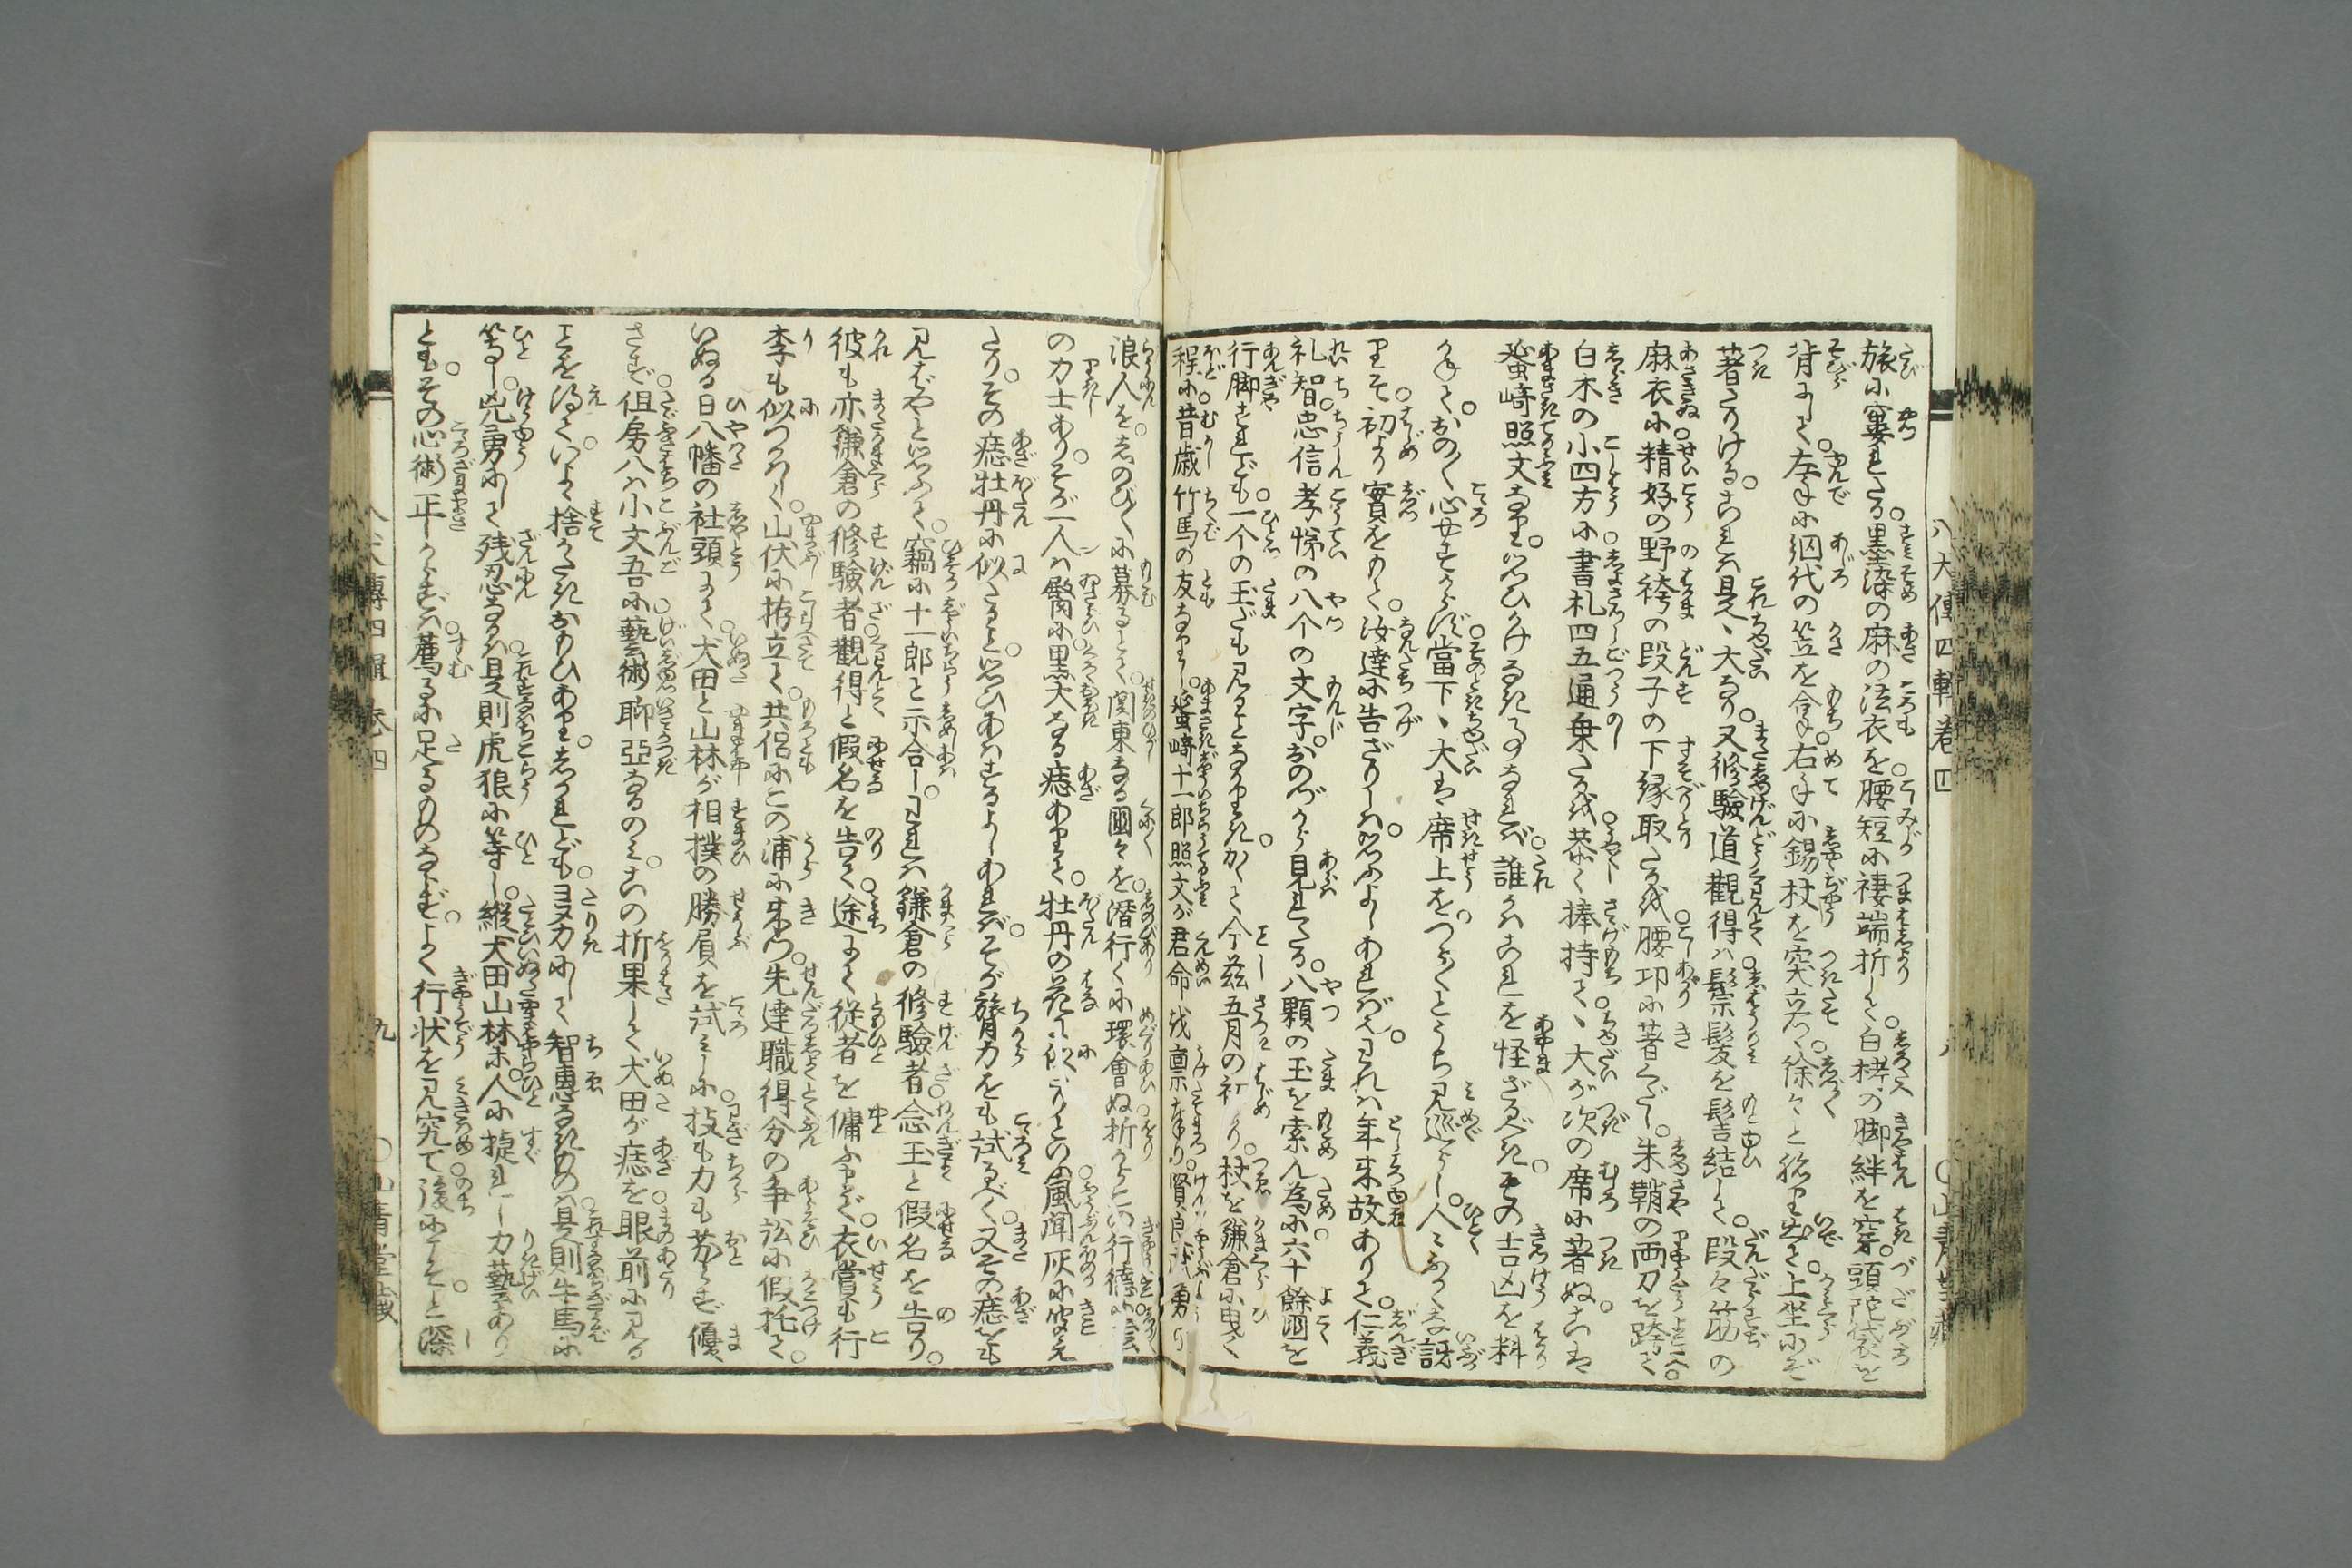 八犬傳四輯卷四
八
○山青堂藏
旅に窶れたる墨染の麻の法衣を腰短に褄端折して白栲の脚絆を穿頭陀袋を
背にして左手に網代の笠を拿右手に錫杖を突立て徐々と脇より出て上坐にぞ
著たりける これは是ゝ大なり又修驗道觀得は鬆髪を髻結して段々筋の
麻衣に精好の野袴の段子の下縁取たるを腰卭に著くだし朱鞘の両刀を跨て
白木の小四方に書札四五通乗たるを恭く捧持てゝ大が次の席に著ぬこれは
蜑崎照文なり思ひかけなき事なれば誰かはこれを怪ざるべきその吉凶を料
かねておの〳〵心安からず當下ゝ大は席上をつら〳〵とうち見巡らし人々ふかくな訝
りそ初より實をもて汝達に告ざりしは思ふよしあればなりわれは年来故ありて仁義
礼智忠信孝悌の八个の文字おのづから見れたる八顆の玉を索ん為に六十餘國を
行脚すれども一个の玉だも見ることなかりきかくて今茲五月の初 り杖を鎌倉に曳く
程に昔歳竹馬の友なりし蜑崎十一郎照文が君命を稟奉り賢良武勇の
浪人をしのび〳〵に募るとて関東なる國々を潜行くに環會ぬ折からこの行徳に
の力士ありそが一人は臋に黒大なる痣ありて牡丹の花に似たりとの風聞灰に聞え
たりその痣牡丹に似たると思ひあはするよしあればそが膂力をも試るべく又その痣をも
見ばやと思ふて竊に十一郎と示合しわれは鎌倉の修驗者念玉と假名を告り
彼も亦鎌倉の修驗者觀得と假名を告て途にて従者を傭ふまで衣裳も行
李も似つかはしく山伏に拵立て共侶にこの浦に来つ先達職得分の争訟に假托て
いぬる日八幡の社頭にて犬田と山林が相撲の勝負を試みしに技も力も劣らず優
さず但房八は小文吾に藝術聊亞なるのみこの折果して犬田が痣を眼前に見る
ことを得ていよ〳〵捨がたき思ひありしかれども勇力にして智惠なきものは是則牛馬に
等し兇勇にして残忍なるは是則虎狼に等し縦犬田山林等人に捷れし力藝あり
ともその心術正からずは薦るに足るものならずよく行状を見究て後にこそと深
八犬傳四輯卷四
九
○山青堂藏